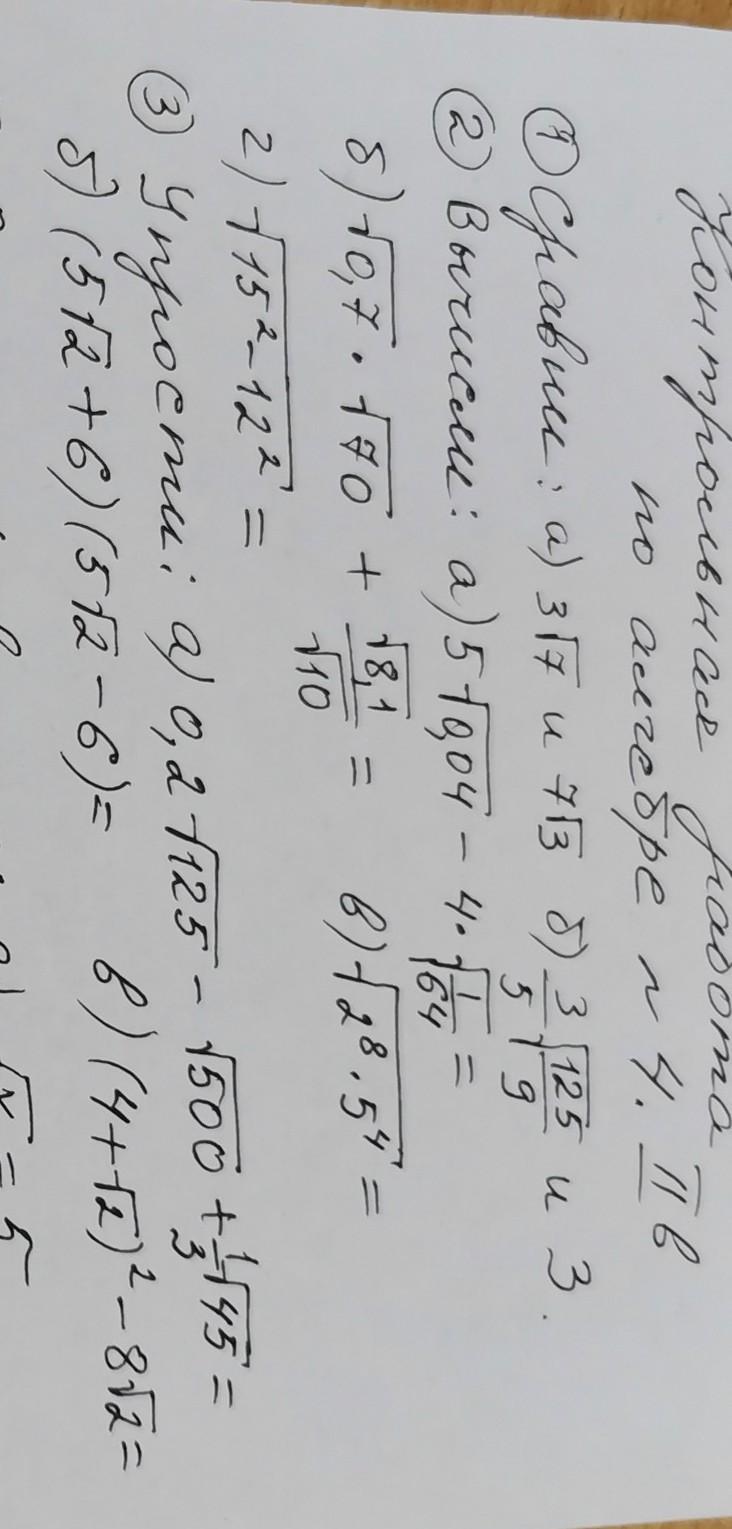 Контрольная работа
по алгебре n 4. II в
① Сравни: а) 3√7 и 7√3 б) 3/5 √(125/9) и 3.
② Вычисли: а) 5√0,04 - 4·√(1/64) =
б) √0,7 · √70 + √8,1/√10 = в) √(2⁸·5⁴) =
г) √(15²-12²) =
③ Упрости: а) 0,2√125 - √500 + 1/3 √45 =
б) (5√2+6)(5√2-6)= в) (4+√2)² - 8√2 =